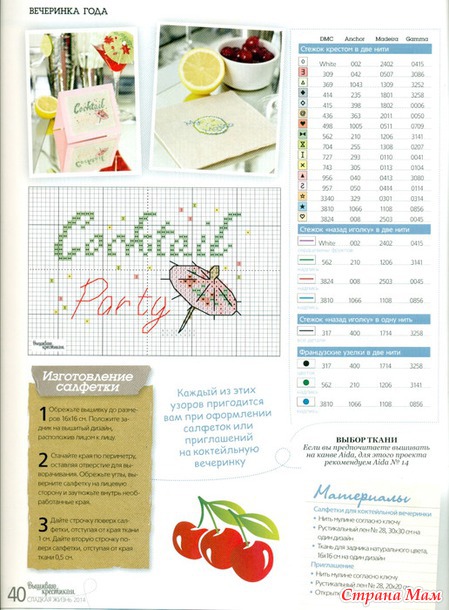 ВЕЧЕРИНКА ГОДА
Cocktail
Cocktail
Party
Вышиваю крестиком
DMC Anchor Madeira Gamma
Стежок крестом в две нити
White 002 2402 0415
309 042 0507 3086
369 1043 1309 3252
414 235 1801 3258
415 398 1802 0006
436 363 2011
498 1005 0511 0709
562 210 1206 3141
704 256 1308
727 293 0110 0041
743 305 0113 0104
956 040 1413 3380
957 050 0414 0114
3340 329 0214
3810 1066 1108 0856
3824 008 2503 0045
Стежок «назад иголку» в две нити
White 002 2402 0415
562 210 1206 3141
3824 008 2503 0045
3810 1066 1108 0856
Стежок «назад иголку» в одну нить
317 400 1714 3258
Французские узелки в две нити
317 400 1714 3258
562 210 1206 3141
3810 1066 1108 0856
ВЫБОР ТКАНИ
Если вы предпочитаете вышивать
на канве Aida, для этого проекта
рекомендуем Aida № 14
Изготовление
салфетки
1 Обрежьте вышивку до разме-
ров 16х16 см. Положите зад-
ник на вышитый дизайн,
расположив лицом к лицу.
2 Стачайте края по периметру,
оставляя отверстие для вы-
ворачивания. Обрежьте углы, вы-
верните салфетку на лицевую
сторону и заутюжьте внутрь необ-
работанные края.
3 Дайте строчку поверх сал-
фетки, отступая от края ткани
1 см. Дайте вторую строчку по-
верх салфетки, отступая от края
ткани 0,5 см.
Каждый из этих
узоров пригодится
вам при оформлении
салфеток или
приглашений
на коктейльную
вечеринку
Материалы
Салфетки для коктейльной вечеринки
• Нить мулине согласно ключу
• Рустикальный лен № 28, 30х30 см на
один дизайн
• Ткань для задника натурального цвета,
16х16 см на один дизайн
Приглашение
• Нить мулине согласно ключу
• Рустикальный лен № 28, 20х20
40 Вышиваю крестиком
СЛАДКАЯ ЖИЗНЬ 2014
Страна Мам